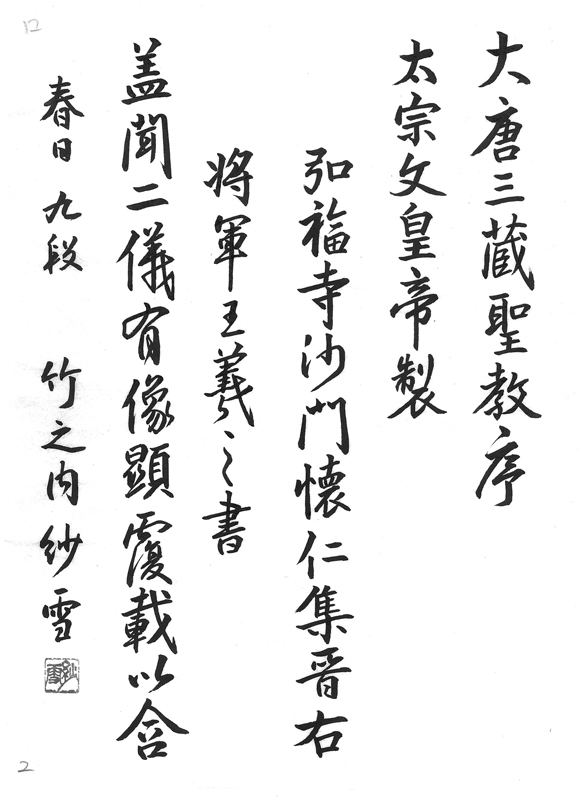 大唐三蔵聖教序
太宗文皇帝製
弘福寺沙門懐仁集晋右
将軍王羲之書
盖聞二儀有像顕覆載以含
春日 九段 竹之内紗雪
紗雪
12
2